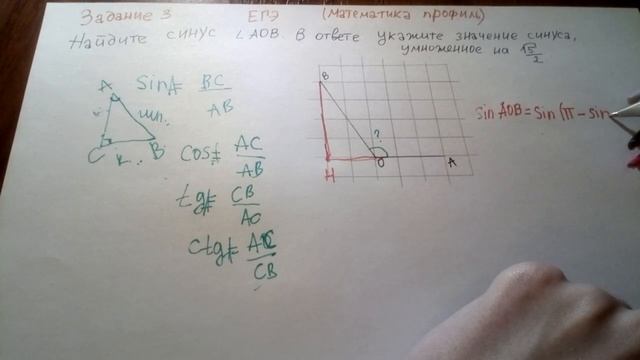 Задание 3 ЕГЭ (Математика профиль)
Найдите синус ∠AOB. В ответе укажите значение синуса,
умноженное на √5/2
A
C
B
Sin = BC/AB
Cos = AC/AB
tg = CB/AC
ctg = AC/CB
B
?
H
O
A
sin AOB = sin (π - sin